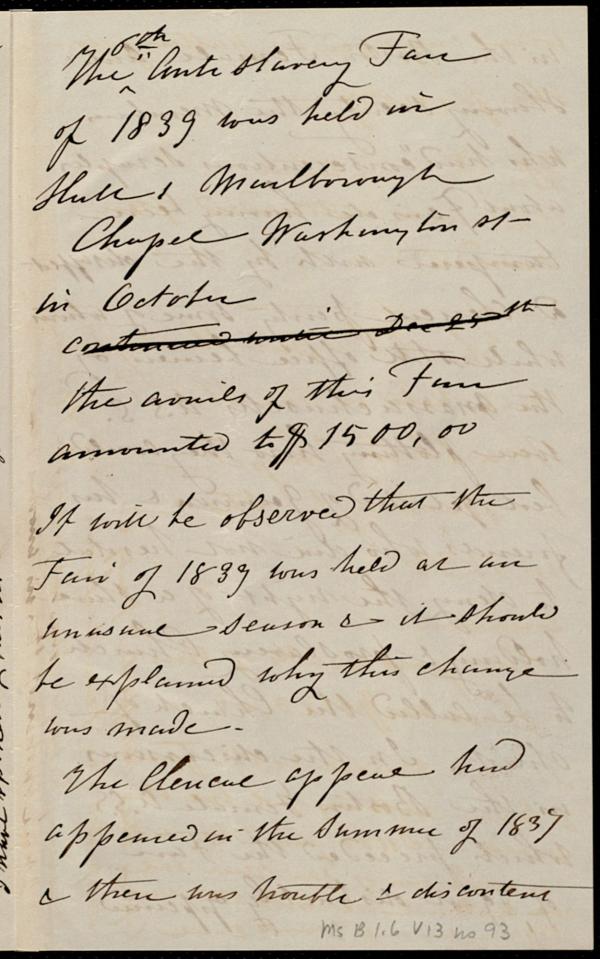 The 6th Anti Slavery Fair
of 1839 was held in
Hall 1 Marlborough
Chapel Washington st
in October
continued until Dec 25th
the avails of this Fair
amounted to $1500,00
It will be observed that the
Fair of 1839 was held at an
unusual season & it should
be explained why this change
was made -
The Clerical appeal had
appeared in the Summer of 1837
& there was trouble & discontent
Ms B 1.6 V13 no 93